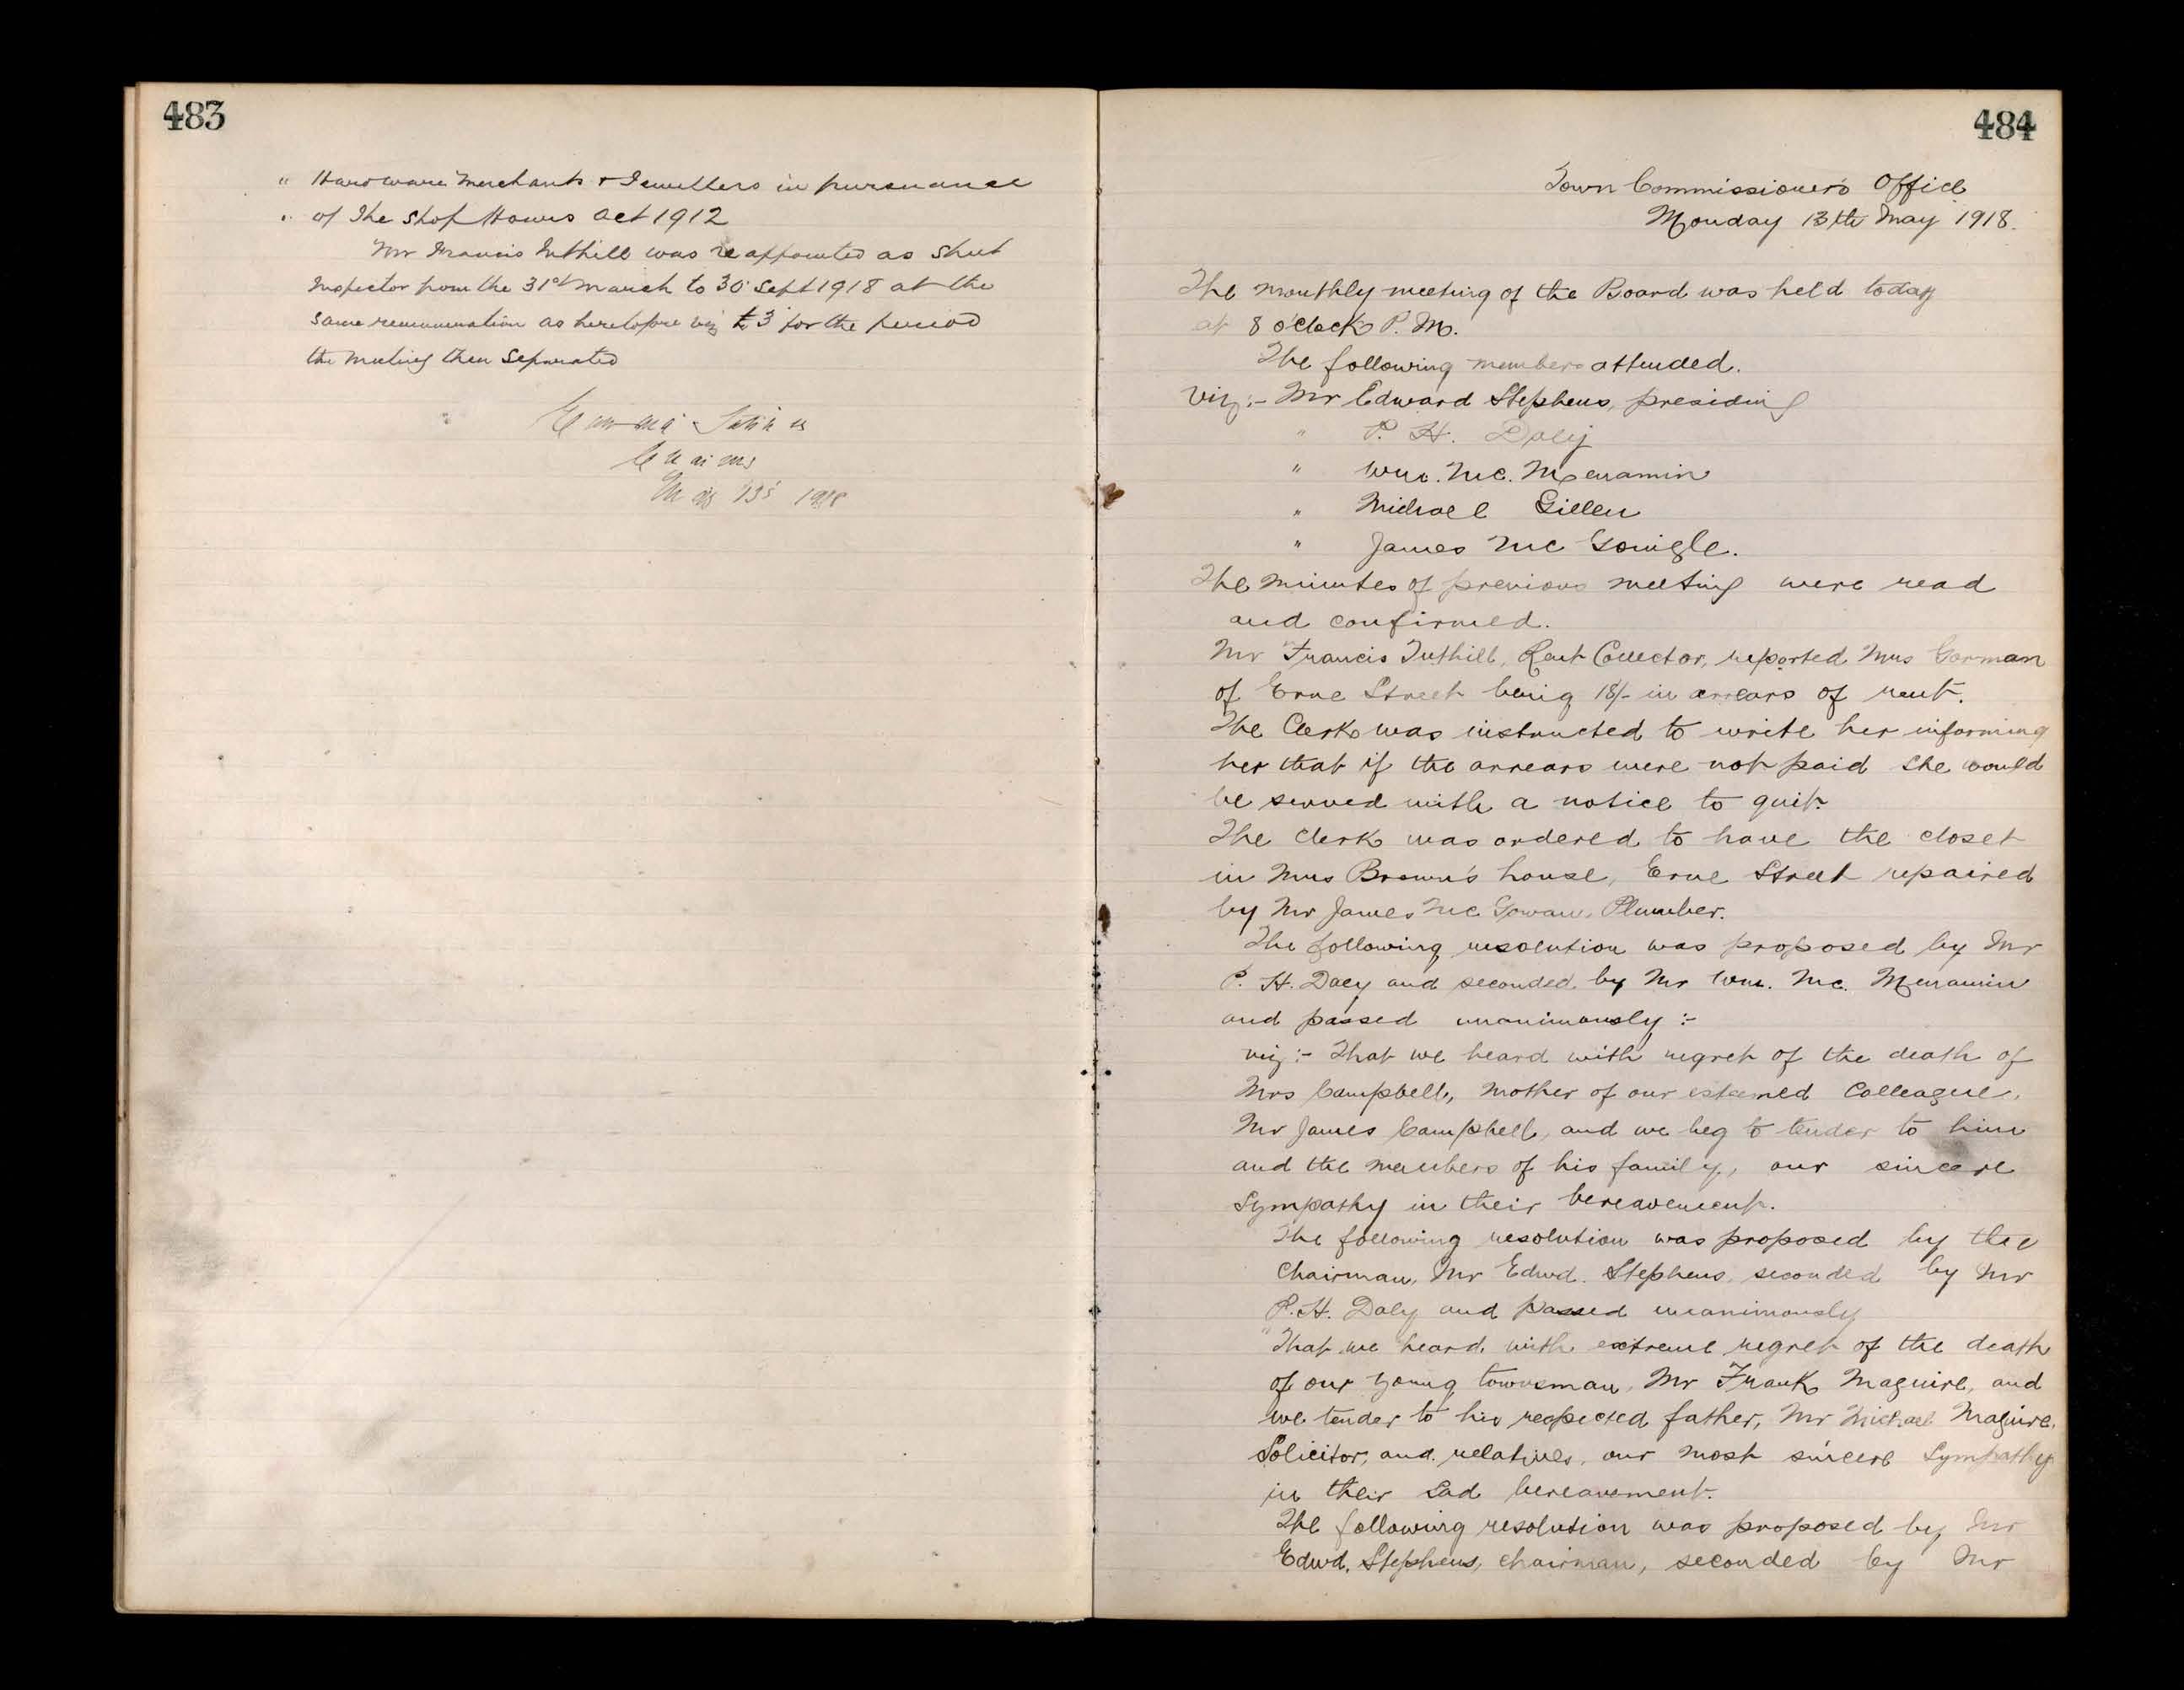 483
" Hardware Merchants & Jewellers in pursuance
" of the Shop Hours act 1912
Mr Francis Tuthill was re appointed as Shut
Inspector from the 31st march to 30 Sept 1918 at the
same remuneration as heretofore viz £3 for the period
the meeting then separated
May 13 1918
484
Town Commissioner's Office
Monday 13th May 1918.
The monthly meeting of the Board was held today
at 8 o'clock P.M.
The following members attended.
Viz:- Mr Edward Stephens, presiding
" P. H. Daly
" Wm. Mc. Menamin
" Michael Gillen
" James Mc Gonigle.
The minutes of previous meeting were read
and confirmed.
Mr Francis Tuthill, Rent Collector, reported Mrs Gorman
of Erne Street being 18/- in arrears of rent.
The Clerk was instructed to write her informing
her that if the arrears were not paid she would
be served with a notice to quit.
The Clerk was ordered to have the closet
in Mrs Brown's house, Erne Street repaired
by Mr James Mc Gowan, Plumber.
The following resolution was proposed by Mr
P. H. Daly and seconded by Mr Wm. Mc. Menamin
and passed unanimously :-
viz :- That we heard with regret of the death of
Mrs Campbell, Mother of our esteemed Colleague,
Mr James Campbell, and we beg to tender to him
and the members of his family, our sincere
Sympathy in their bereavement.
The following resolution was proposed by the
Chairman, Mr Edwd. Stephens, seconded by Mr
P. H. Daly and passed unanimously
"That we heard with extreme regret of the death
of our young townsman, Mr Frank Maguire, and
we tender to his respected father, Mr Michael Maguire,
Solicitor, and relatives, our most sincere Sympathy
in their sad bereavement.
The following resolution was proposed by Mr
Edwd. Stephens, Chairman, seconded by Mr